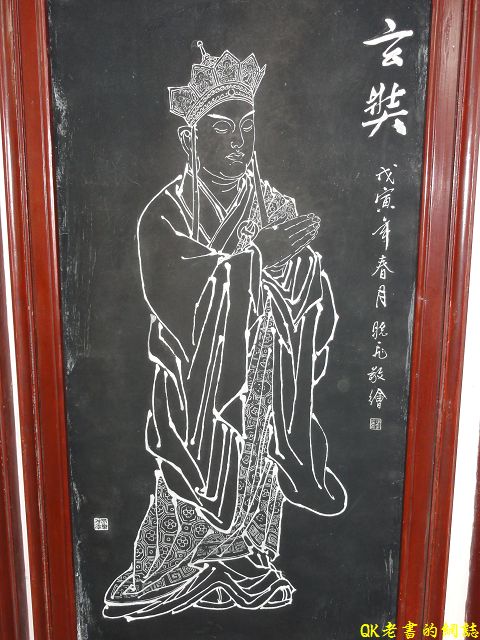 玄奘
戊寅年春月
敬繪
QK老書的網誌